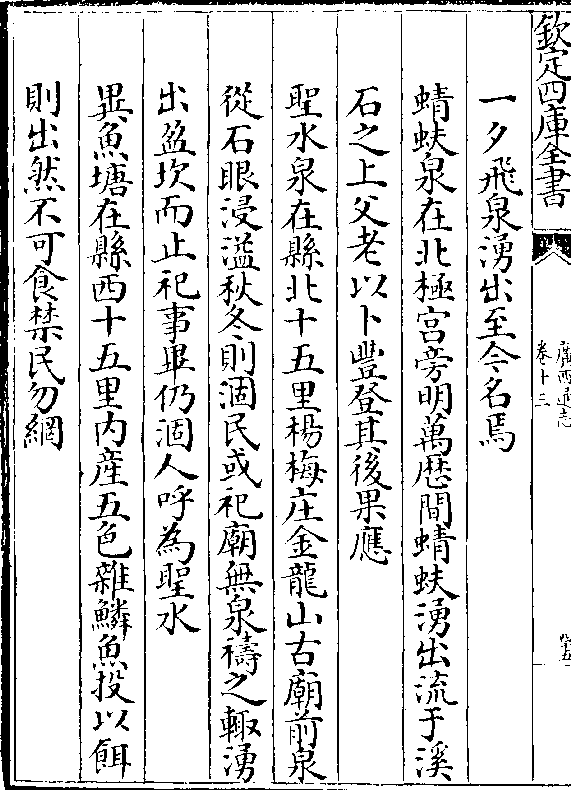 欽定四庫全書
廣西通志
卷十三
四五
一夕飛泉湧出至今名焉
蜻蚨泉在北極宮旁明萬厯間蜻蚨湧出流于溪
石之上父老以卜豐登其後果應
聖水泉在縣北十五里楊梅庄金龍山古廟前泉
從石眼浸溢秋冬則涸民或祀廟無泉禱之輙湧
出盈坎而止祀事畢仍涸人呼為聖水
異魚塘在縣西十五里内産五色雜鱗魚投以餌
則出然不可食禁民勿網